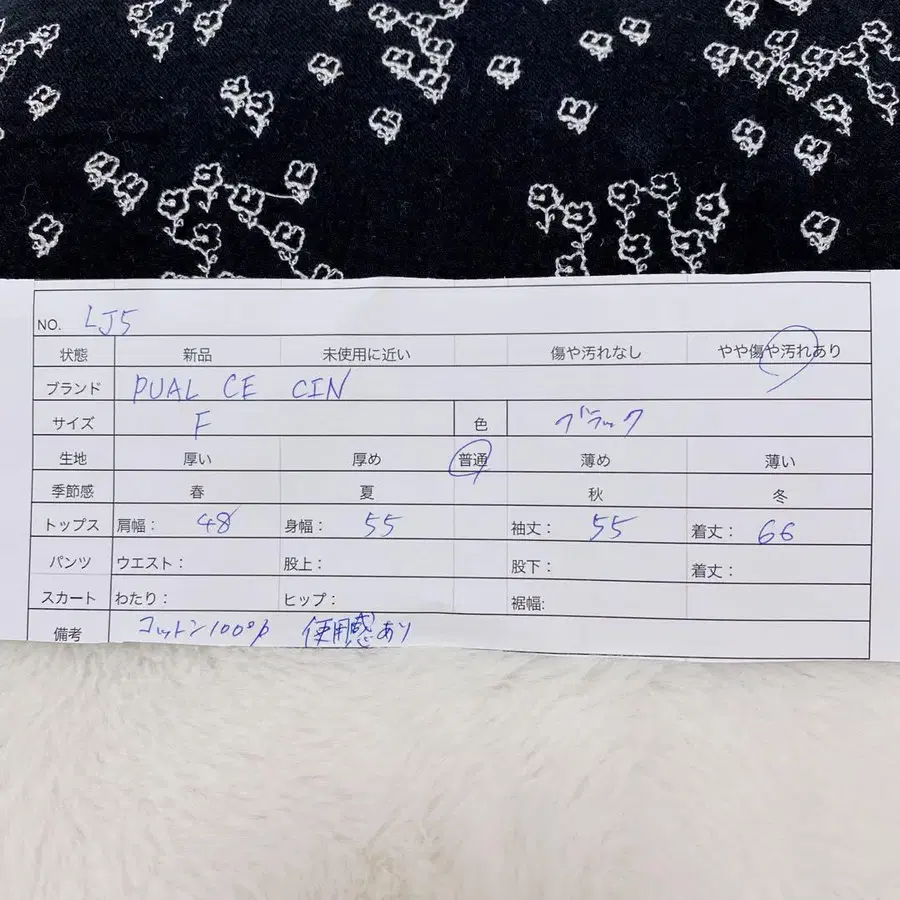 NO. LJ5
状態 新品 未使用に近い 傷や汚れなし やや傷や汚れあり
ブランド PUAL CE CIN
サイズ F 色 ブラック
生地 厚い 厚め 普通 薄め 薄い
季節感 春 夏 秋 冬
トップス 肩幅： 48 身幅： 55 袖丈： 55 着丈： 66
パンツ ウエスト： 股上： 股下： 着丈：
スカート わたり： ヒップ： 裾幅:
備考 コットン100% 使用感あり